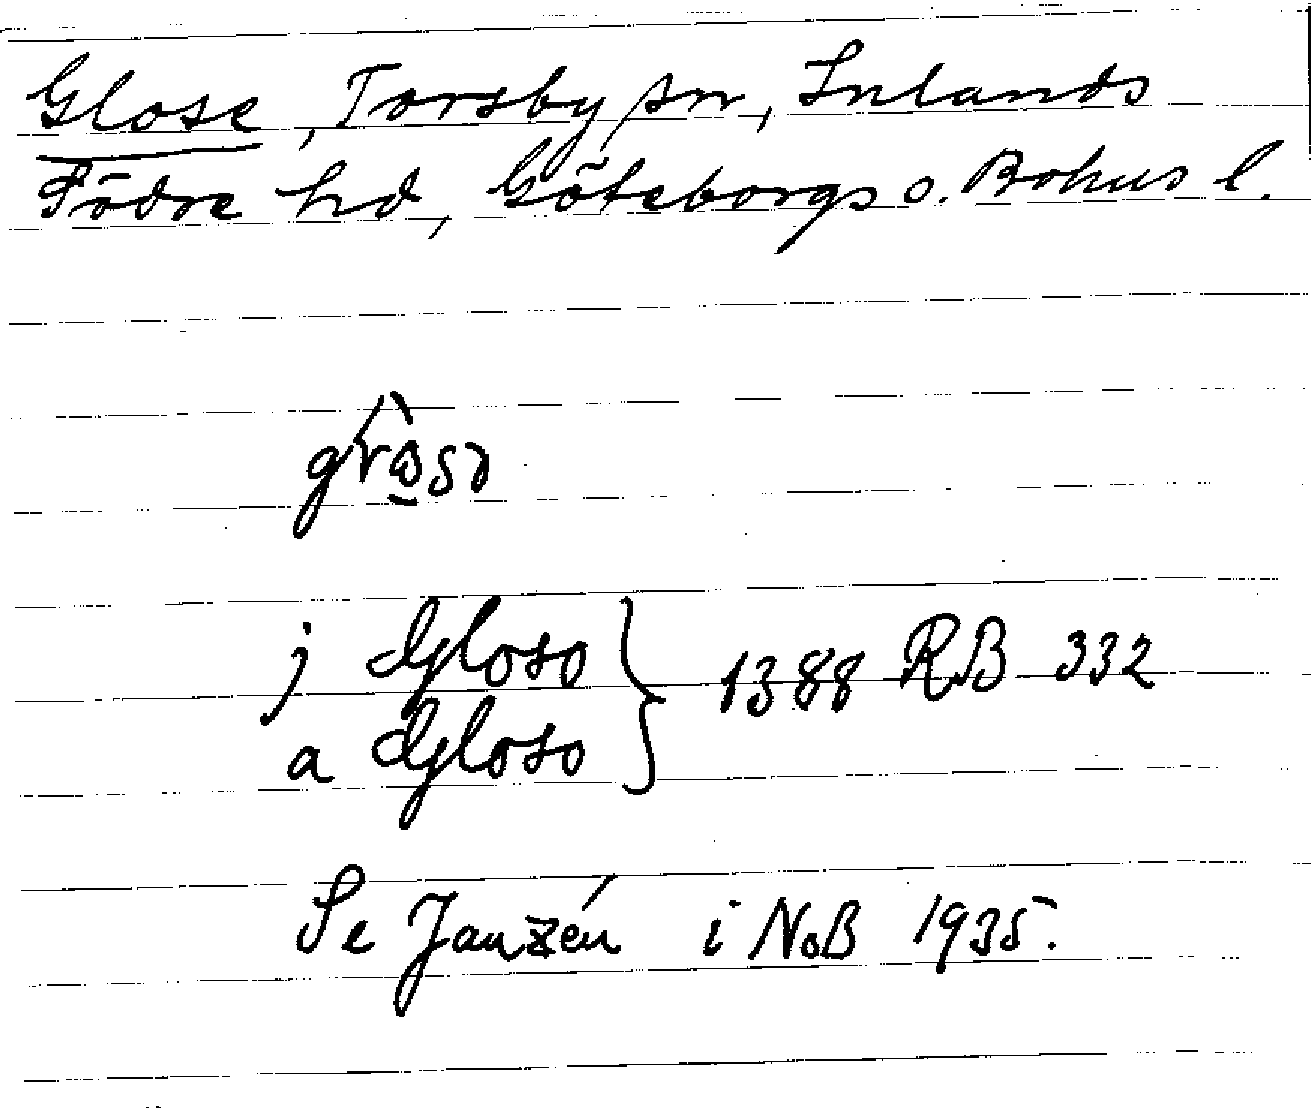 Glose, Torsby sn, Inlands
Södre hd, Göteborgs o. Bohus l.
j Gloso
a Gloso
1388 RB 332
Se Janzén i NoB 1935.